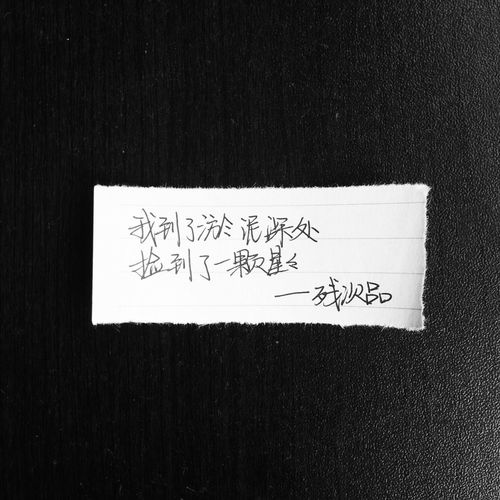 我到了淤泥深处
捡到了一颗星々
—残次品